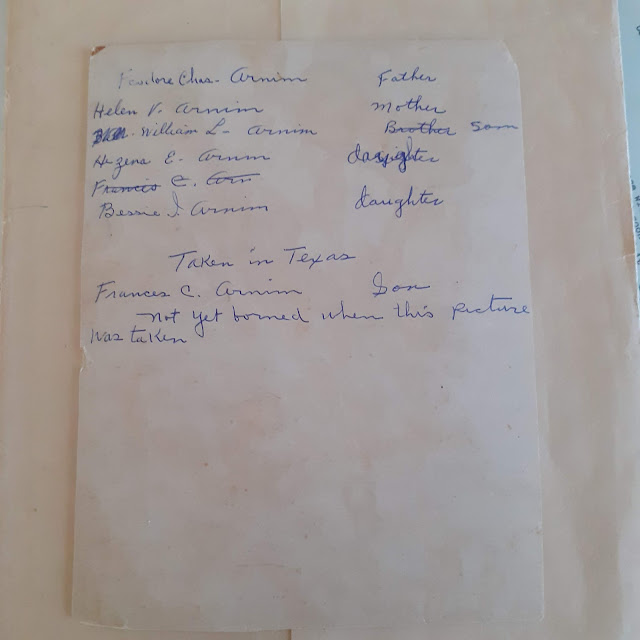 Feodore Chas- Arnim Father
Helen V. Arnim Mother
William L- Arnim Brother Son
H-zena E. Arnim daughter
Francis C. Arn
Bessie I. Arnim daughter
Taken in Texas
Frances C. Arnim Son
not yet borned when this picture
was taken